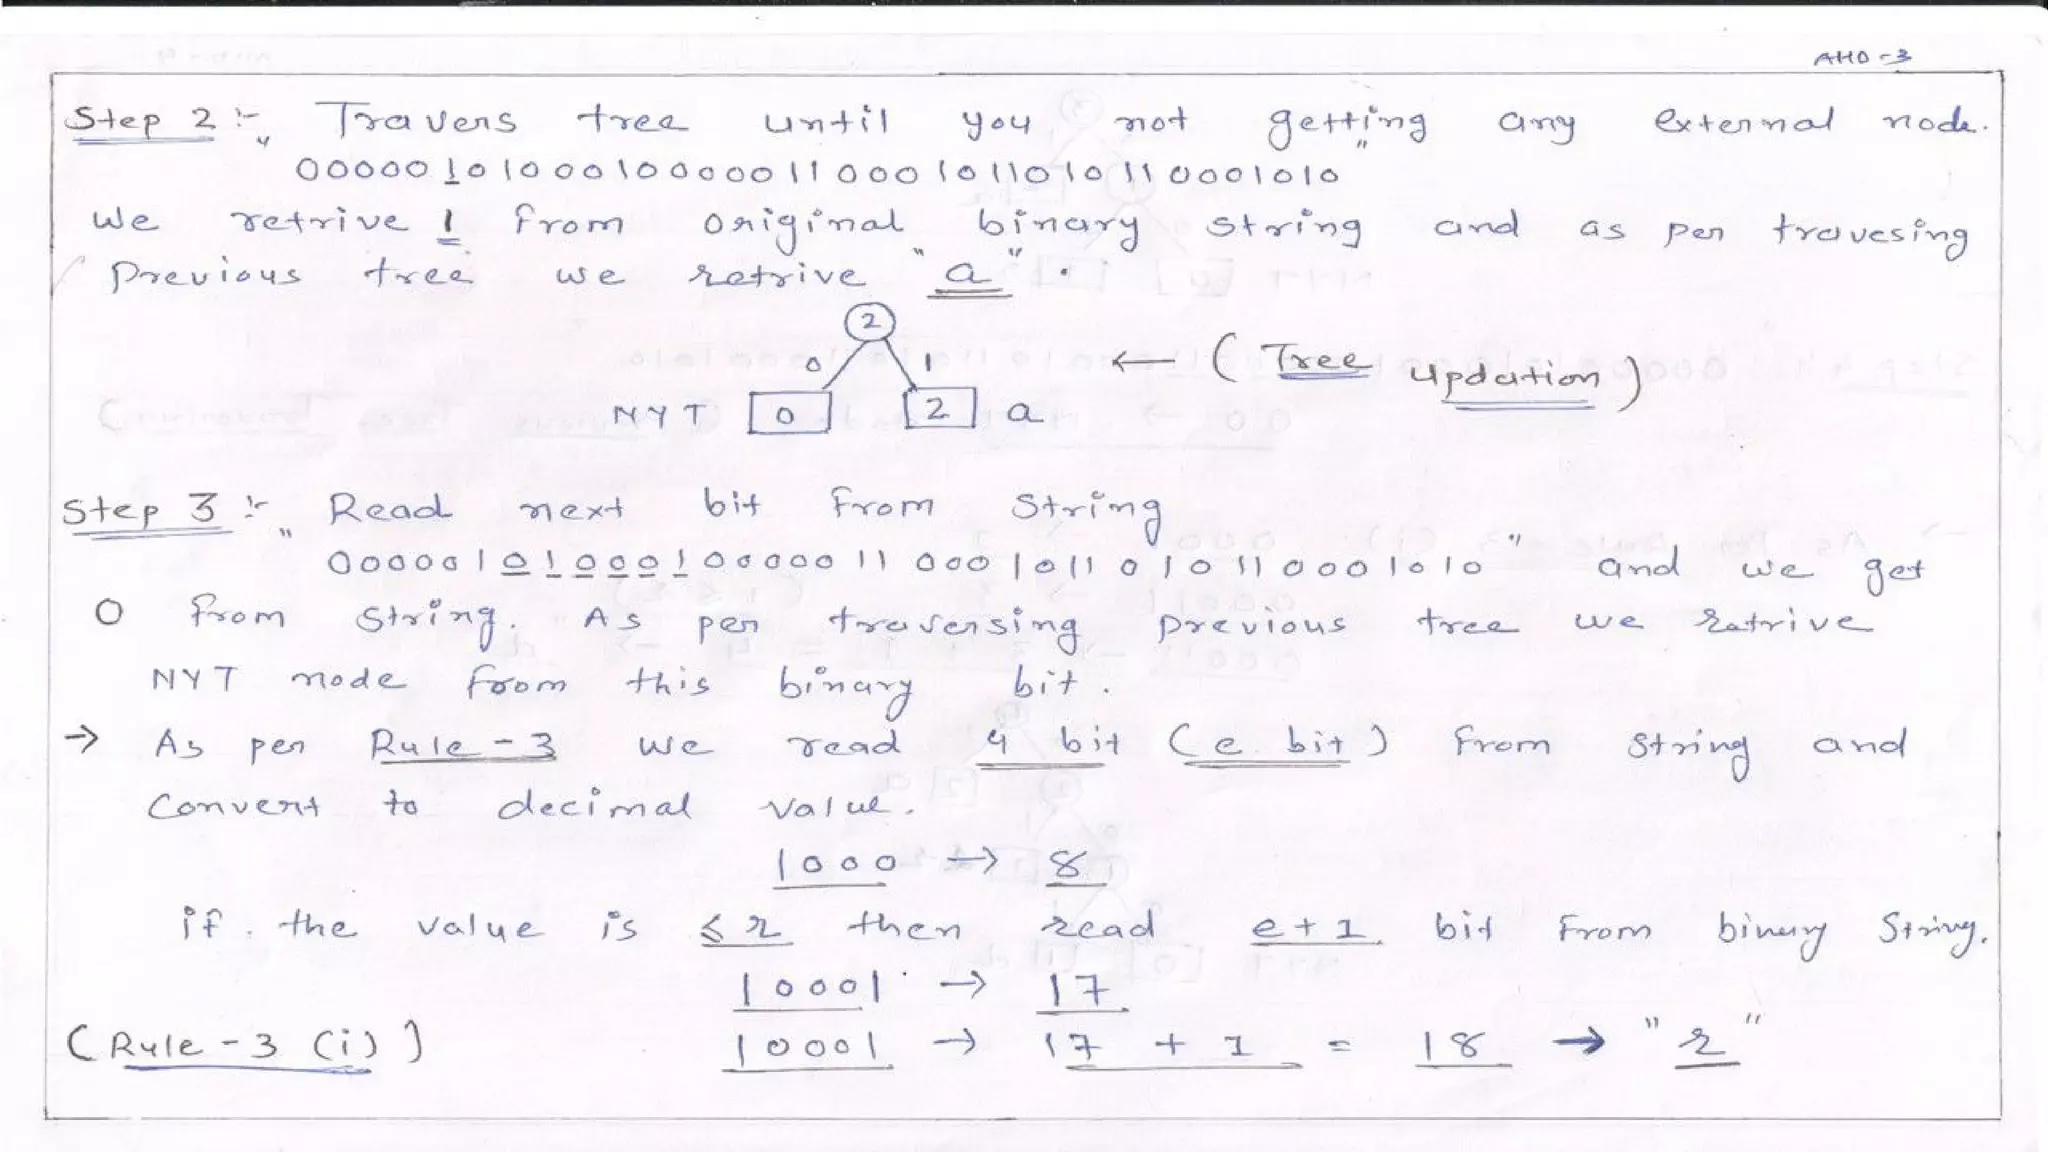 AHD-3
Step 2 :- Travers tree until you not getting any external node.
"00000101000100000110001011010110001010"
We retrive 1 from original binary string and as per travesing
previous tree we retrive "a".
2
0 1 ← (Tree updation)
NYT 0 2 a
Step 3 :- Read next bit from string
"00000101000100000110001011010110001010" and we get
0 from string. As per traversing previous tree we retrive
NYT node from this binary bit.
→ As per Rule-3 we read 4 bit (e bit) from string and
convert to decimal value.
1000 → 8
if the value is ≤ r then read e+1 bit from binary string.
10001 → 17
(Rule-3 (i)) 10001 → 17 + 1 = 18 → "r"